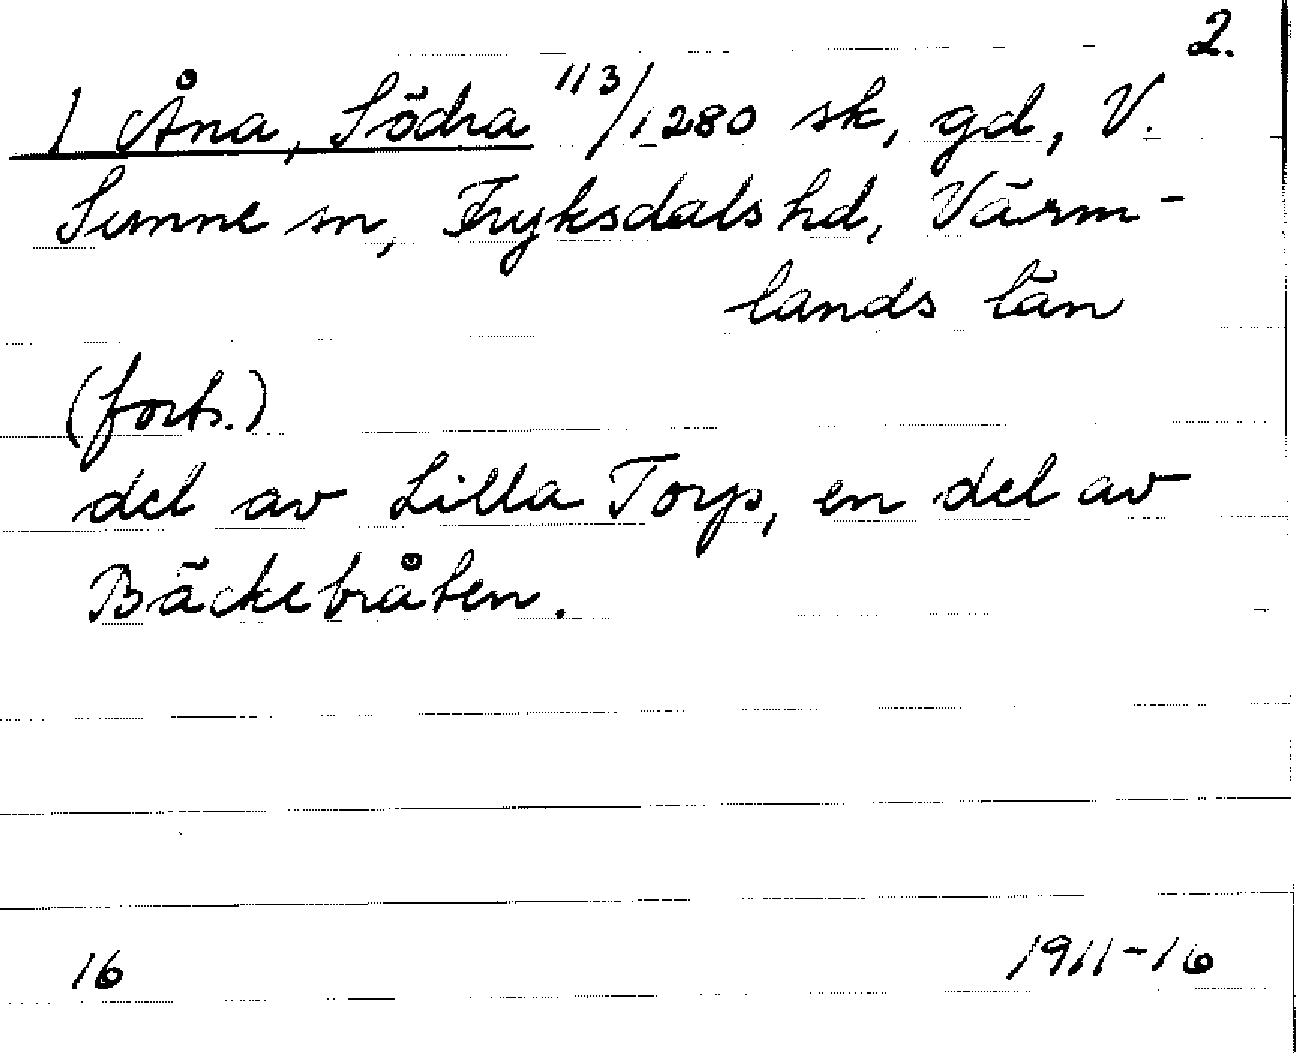 2.
1 Åna, Södra 113/1280 sk, gd, V.
Sunne sn, Fryksdals hd, Värm-
lands län
(forts.)
del av Lilla Torp, en del av
Bäckebråten.
16 1911-16